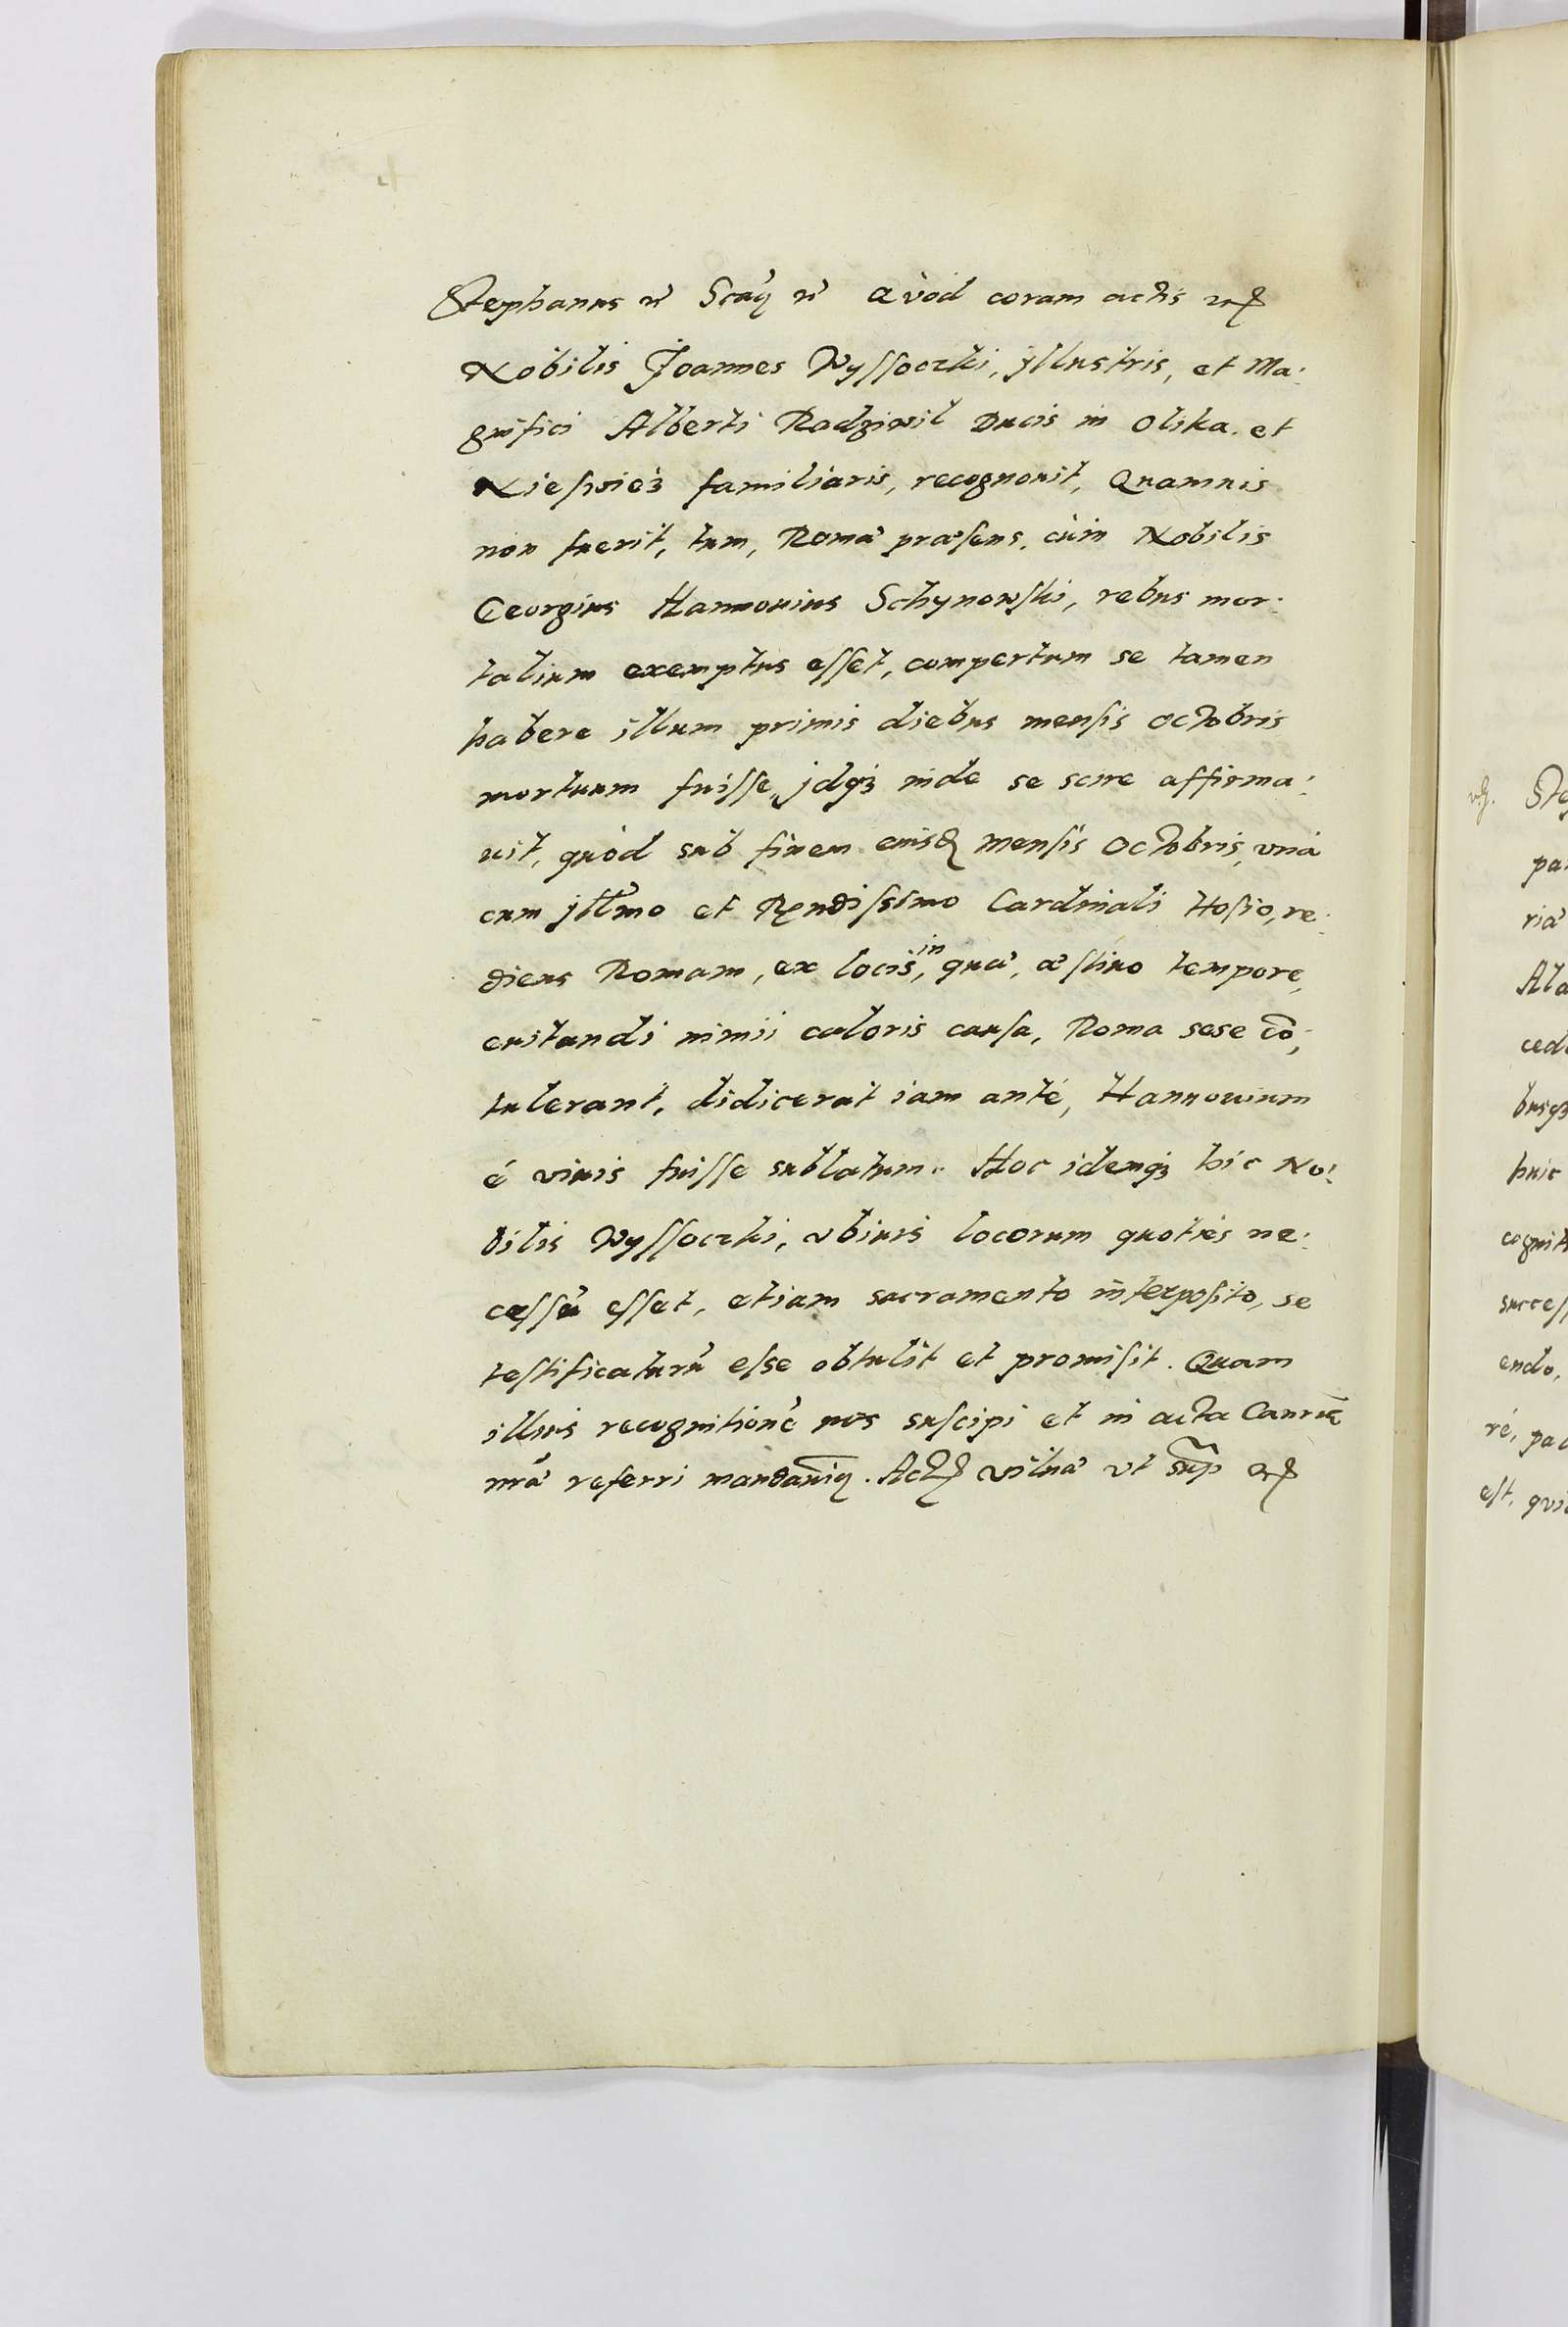 Stephanus etc̃ Scaꝫ etc̃ Quòd coram actis etc
Nobilis Joannes Wyssoczki, jllustris, et Ma:
gnifici Alberti Radziwil Ducis in Olika. et
Niesvież familiaris, recognouit, Quamuis
non fuerit, tum, Romæ præsens, cùm Nobilis
Georgius Hannouius Schynowski, rebus mor:
talium exemptus esset, compertum se tamen
habere illum primis diebus mensis octobris
mortuum fuisse, jdqꝫ inde se scire affirma:
uit, quòd sub finem eiusd mensis Octobris, vnà
cum jllmo et Rendissimo Cardinali Hosio, re:
diens Romam, ex locis, in quæ, æstiuo tempore,
euitandi nimii caloris causa, Roma sese cõ:
tulerant, didicerat iam antè, Hannouium
é viuis fuisse sublatum. Hoc idemqꝫ hic No:
bilis Wyssoczki, vbiuis locorum quoties ne:
cessũ esset, etiam sacramento interposito, se
testificaturũ esse obtulit et promisit. Quam
illius recognitionẽ nos suscipi et in acta Canriæ
nræ referri mandauimꝫ. Act Vilnæ vt supra etc
Ste
pa
riæ
Ala
ced
busqꝫ
huic
cognit
success
endo,
ré, pac
est, qui